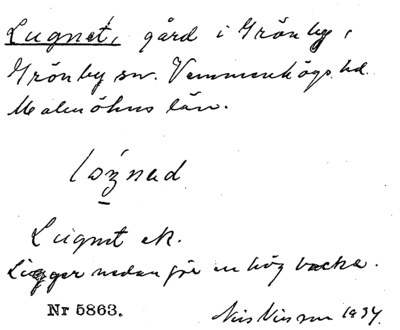 Lugnet, gård i Grönby,
Grönby sn. Vemmenhögs hd.
Malmöhus län.
Lugnet ek.
Ligger nedanför en hög backe.
Nr 5863.
Nils Nilsson 1934